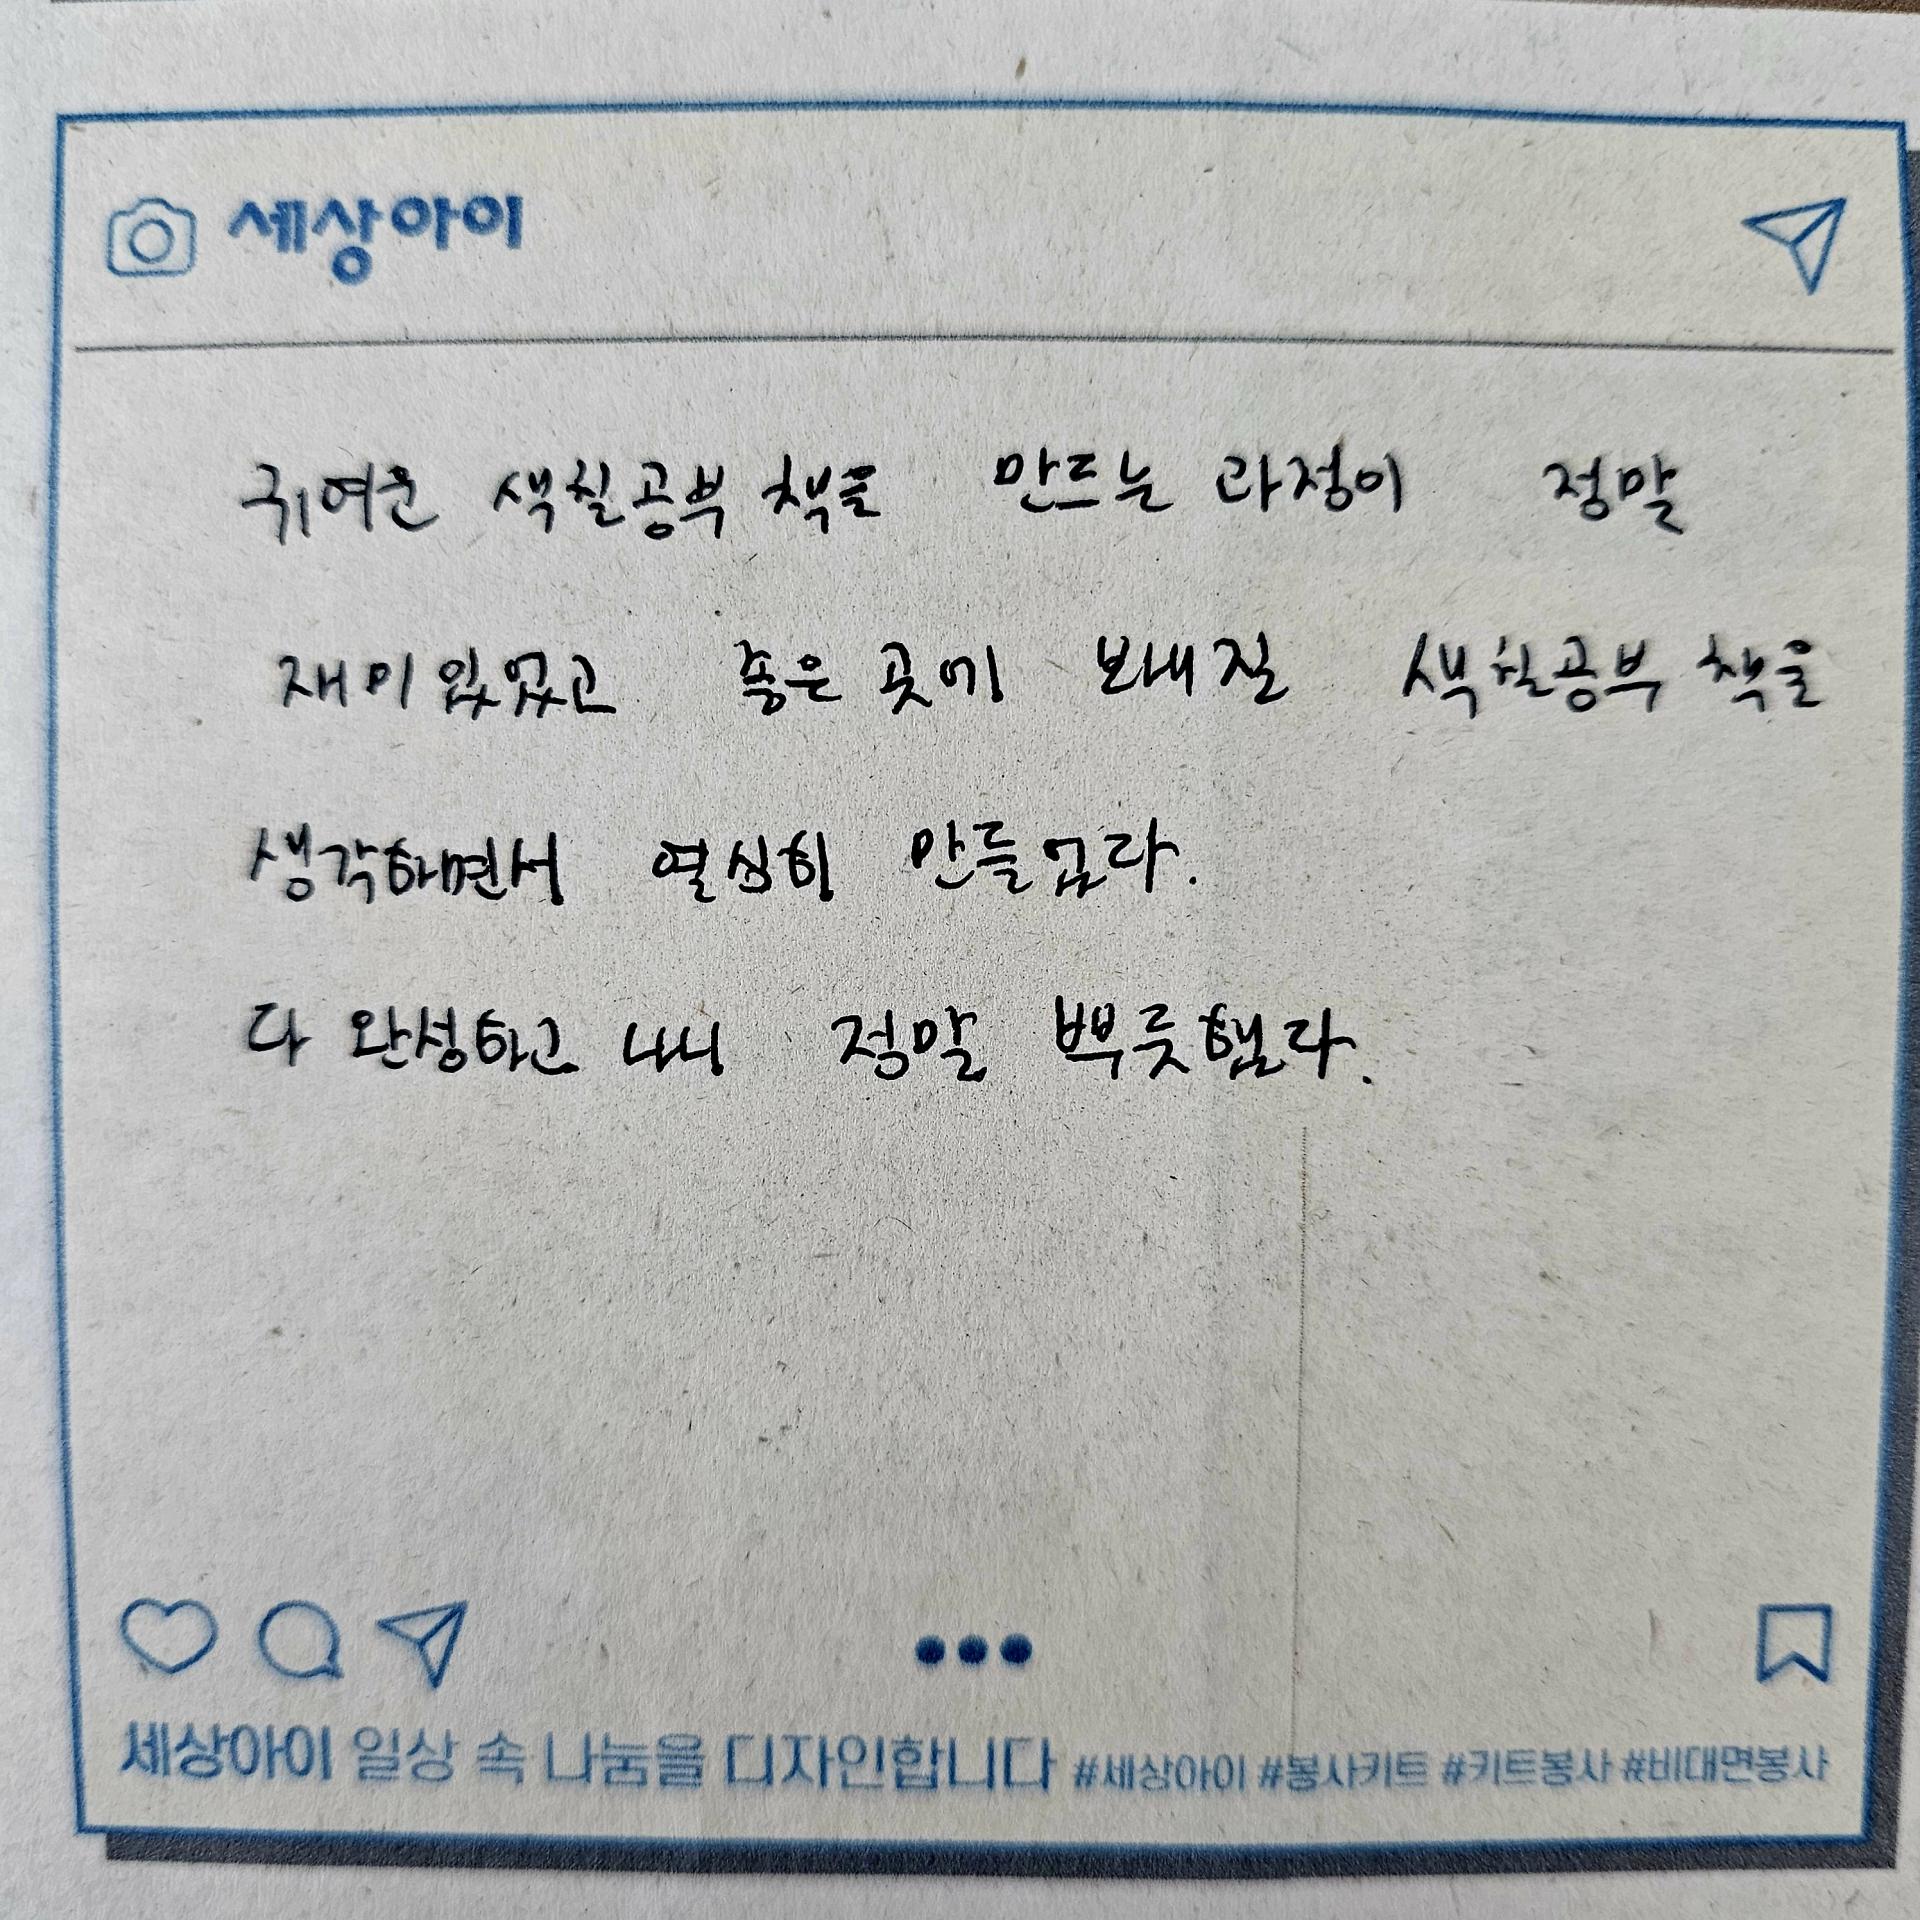 세상아이
귀여운 색칠공부 책을 만드는 과정이 정말
재미있었고 좋은 곳에 보내질 색칠공부 책을
생각하면서 열심히 만들었다.
다 완성하고 나니 정말 뿌듯했다.
세상아이 일상 속 나눔을 디자인합니다 #세상아이 #봉사키트 #키트봉사 #비대면봉사